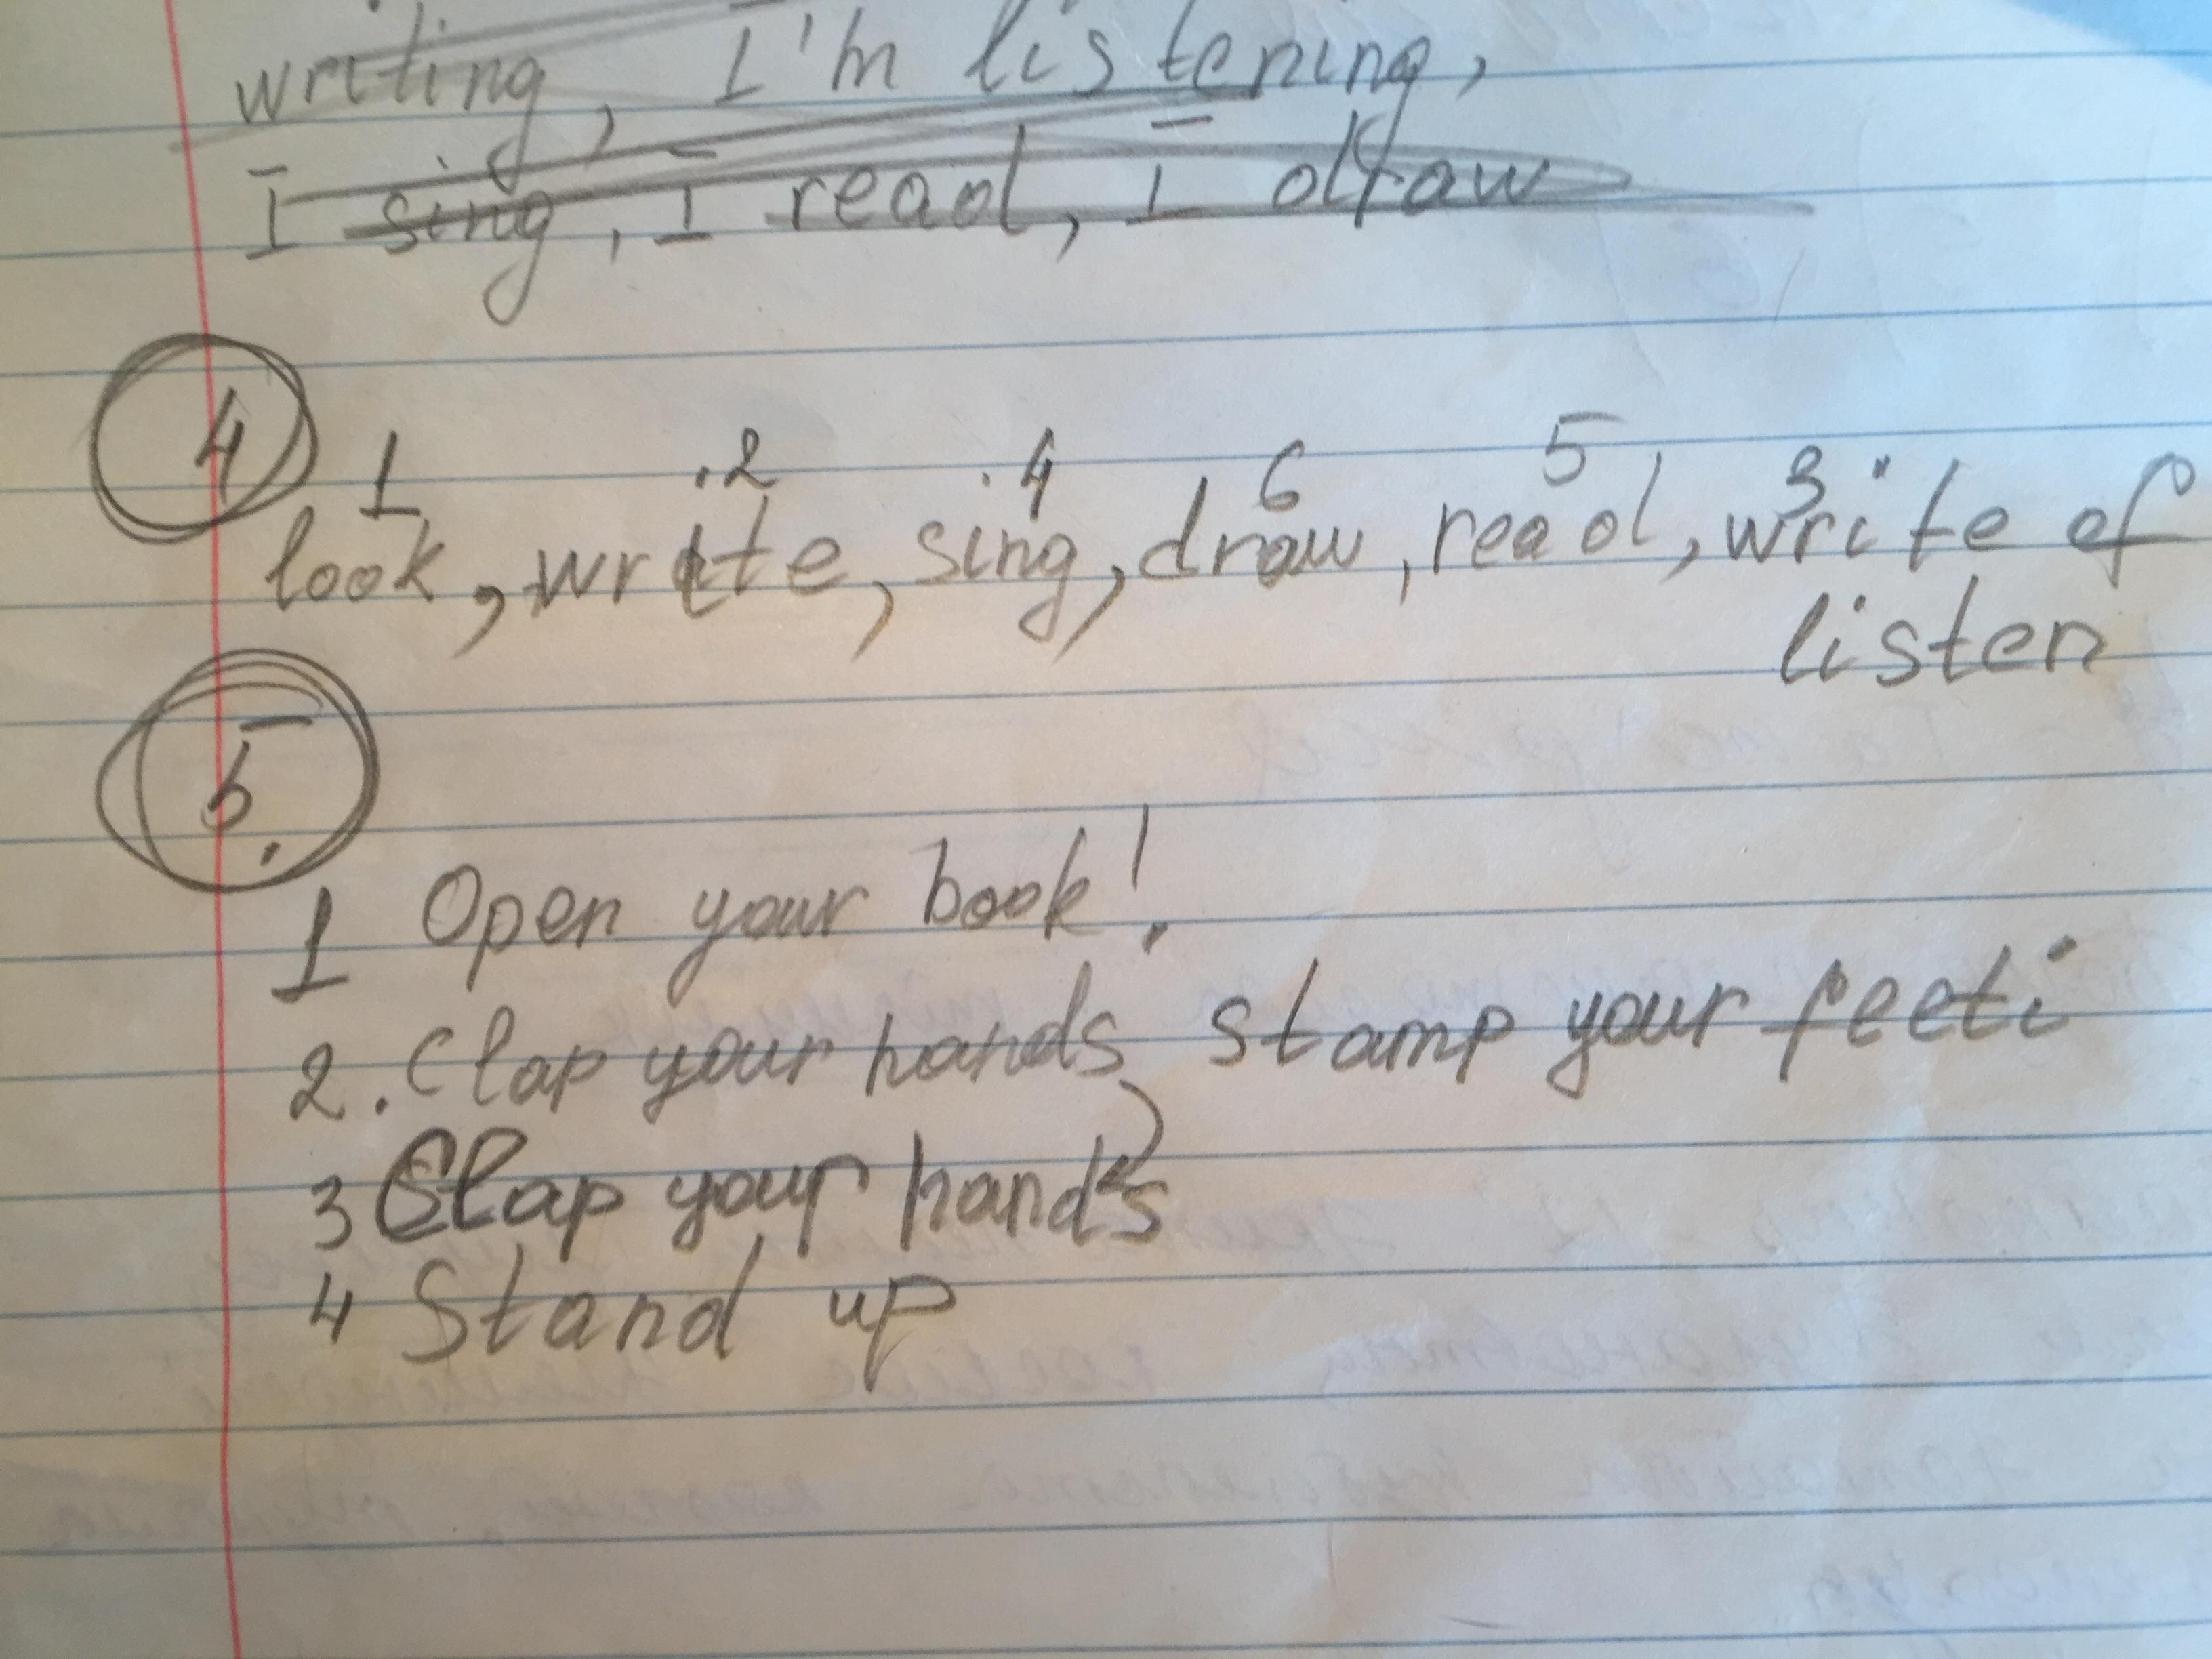 writing, I'm listening,
I sing, I read, I draw
4
1 2 4 6 5 3
look, write, sing, draw, read, write of
listen
5.
1 Open your book!
2. Clap your hands, stamp your feet!
3 Clap your hands
4 Stand up